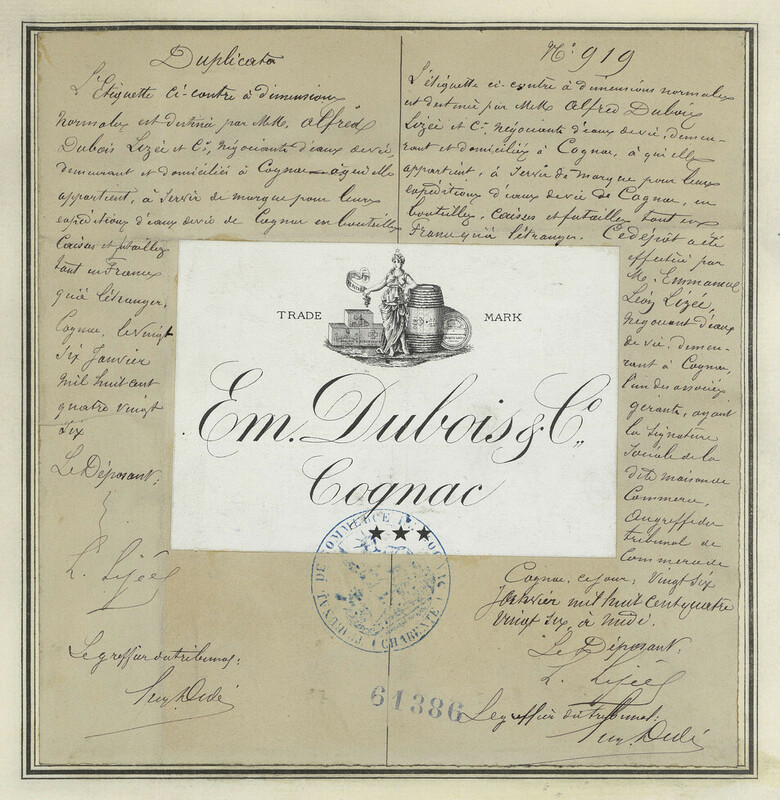 Duplicata
L'Etiquette ci-contre à dimensions
normales est destinée par MM. Alfred
Dubois Lizée et Cie, négociants d'eaux de vie,
demeurant et domiciliés à Cognac à qui elle
appartient, à servir de marque pour leurs
expéditions d'eaux de vie de Cognac en bouteilles
Caisses et futailles
tant en France
qu'à l'étranger.
Cognac, le vingt
six Janvier
mil huit cent
quatre vingt
six
Le Déposant:
L. Lizée
Le greffier du tribunal:
N°. 919
L'étiquette ci-contre à dimensions normales
est destinée par MM. Alfred Dubois
Lizée et Cie, négociants d'eaux de vie, demeu-
rant et domiciliés à Cognac, à qui elle
appartient, à servir de marque pour leurs
expéditions d'eaux de vie de Cognac, en
bouteilles, caisses et futailles tant en
France qu'à l'étranger. Ce dépôt a été
effectué par
M. Emmanuel
Léon Lizée,
négociant d'eaux
de vie, demeu-
rant à Cognac,
l'un des associés
gérants, ayant
la signature
sociale de la
dite maison de
Commerce,
au greffe du
tribunal de
Commerce de
Cognac, ce jour, vingt six
Janvier mil huit cent quatre
vingt six, à midi.
Le Déposant:
L. Lizée
Le greffier du tribunal:
TRADE MARK
Em. Dubois & Co.,
Cognac
★★★
TRIBUNAL DE COMMERCE DE COGNAC
(CHARENTE)
61386